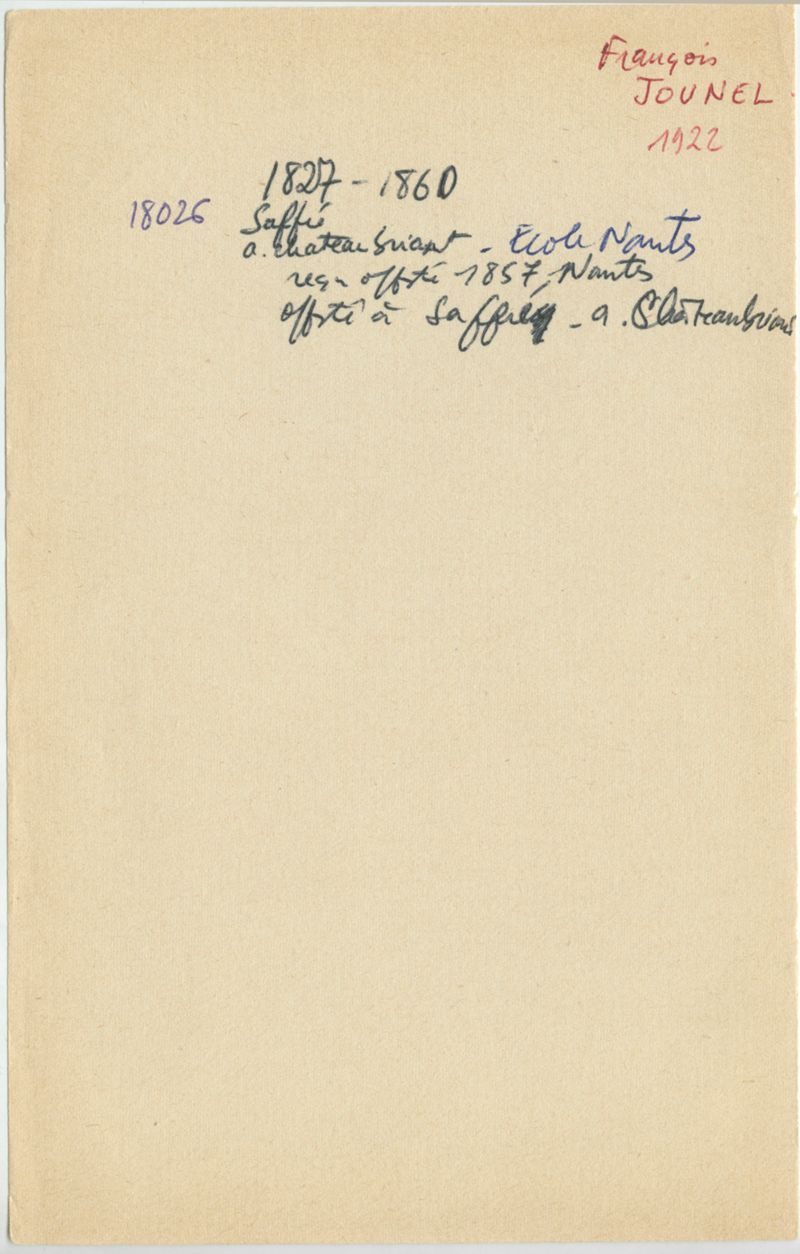 François
JOUNEL
1922
1827 - 1860
18026 Saffré
a. chateaubriant - Ecole Nantes
reçu offsté 1857, Nantes
offsté à Saffré - a. Châteaubriant